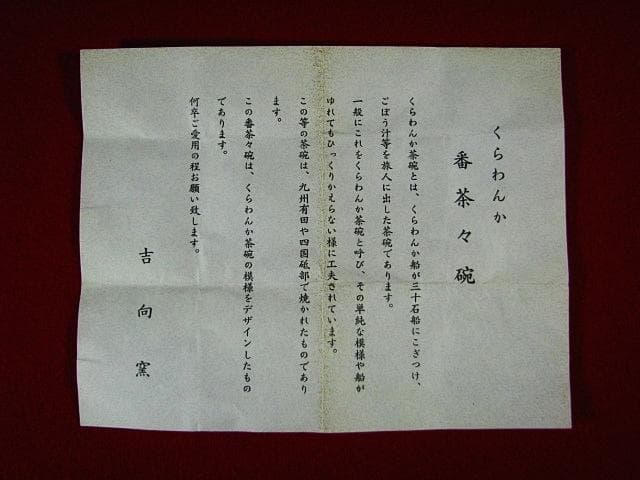 くらわんか
番茶々碗
くらわんか茶碗とは、くらわんか船が三十石船にこぎつけ、
ごぼう汁等を旅人に出した茶碗であります。
一般にこれをくらわんか茶碗と呼び、その単純な模様や船が
ゆれてもひっくりかえらない様に工夫されています。
この等の茶碗は、九州有田や四国砥部で焼かれたものであり
ます。
この番茶々碗は、くらわんか茶碗の模様をデザインしたもの
であります。
何卒ご愛用の程お願い致します。
吉向窯